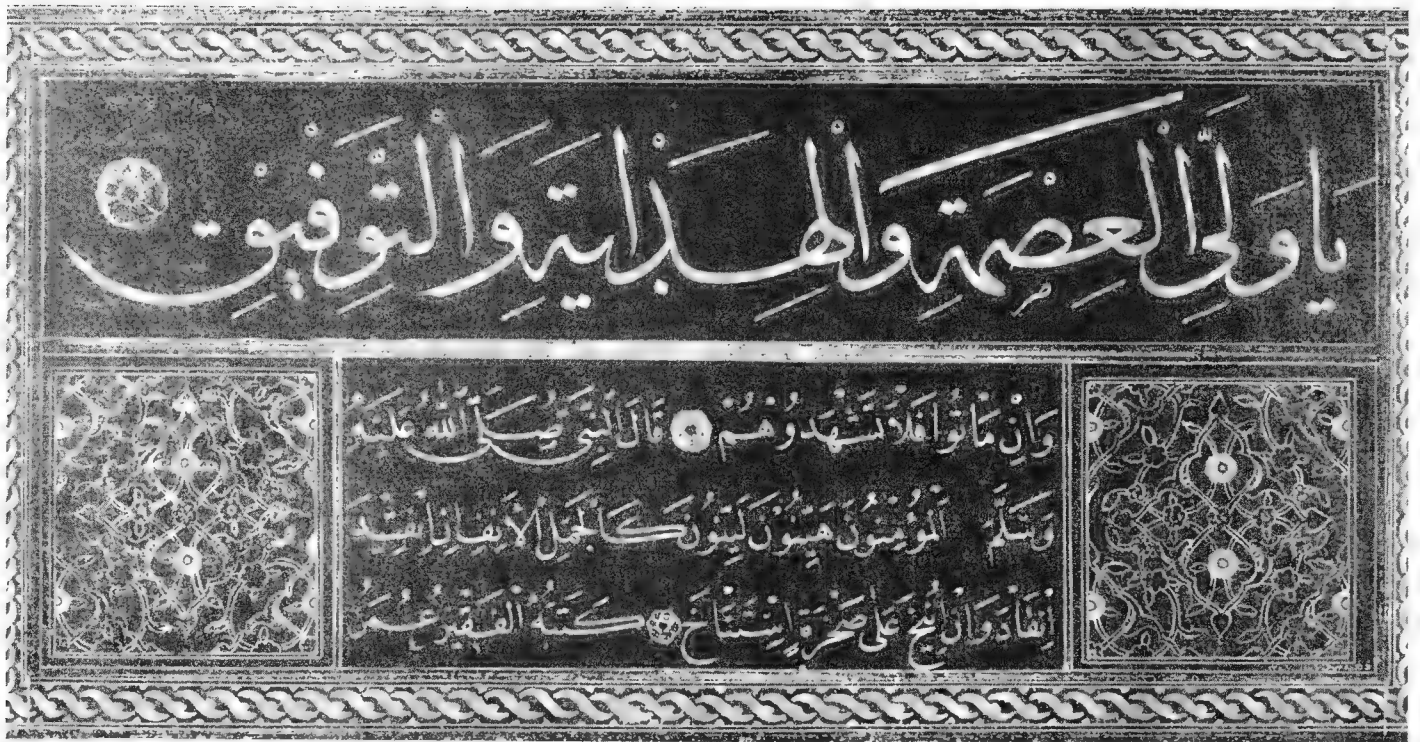 يَا وَلِيَّ الْعِصْمَةِ وَالْهِدَايَةِ وَالتَّوْفِيقِ
وَإِنْ مَاتُوا فَلَا تَشْهَدُوهُمْ قَالَ النَّبِيُّ صَلَّى اللّٰهُ عَلَيْهِ
وَسَلَّمَ الْمُؤْمِنُونَ هَيِّنُونَ لَيِّنُونَ كَالْجَمَلِ الْأَنِفِ إِنِ اسْتُقِيدَ
اِنْقَادَ وَإِنْ أُنِيخَ عَلَى صَخْرَةٍ اِسْتَنَاخَ كَتَبَهُ الْفَقِيرُ عُمَرُ